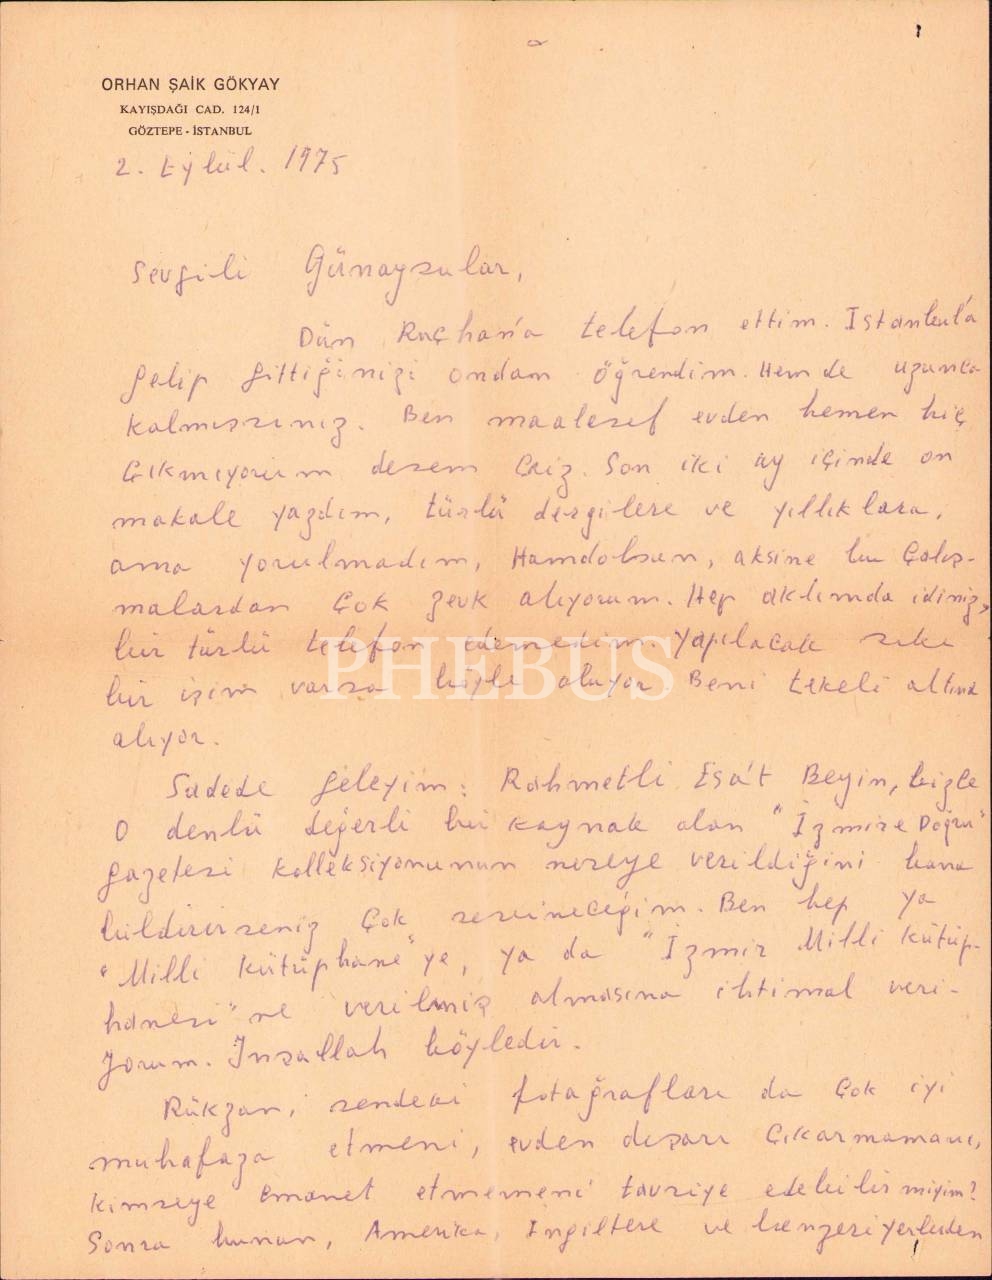 ORHAN ŞAİK GÖKYAY
KAYIŞDAĞI CAD. 124/1
GÖZTEPE - İSTANBUL
2. Eylül. 1975
Sevgili Günaysular,
Dün Ruçhan'a telefon ettim. İstanbul'a
gelip gittiğinizi ondan öğrendim. Hem de uzunca
kalmışsınız. Ben maalesef evden hemen hiç
çıkmıyorum desem caiz. Son iki ay içinde on
makale yazdım, türlü dergilere ve yıllıklara,
ama yorulmadım, Hamdolsun, aksine bu çalış-
malardan çok zevk alıyorum. Hep aklımda idiniz,
bir türlü telefon edemedim. Yapılacak sıkı
bir işim varsa böyle oluyor. Beni tekeli altına
alıyor.
Sadede geleyim: Rahmetli Esa't Beyin, bizce
O denlü değerli bir kaynak olan "İzmire Doğru"
gazetesi kolleksiyonunun nereye verildiğini bana
bildirirseniz çok sevineceğim. Ben hep ya
"Milli Kütüphane"ye, ya da "İzmir Milli Kütüp-
hanesi"ne verilmiş olmasına ihtimal veri-
yorum. İnşallah böyledir.
Rükzan, sendeki fotoğrafları da çok iyi
muhafaza etmeni, evden dışarı çıkarmamanı,
kimseye emanet etmemeni tavsiye edebilir miyim?
Sonra bunun, Amerika, İngiltere ve benzeri yerlerden
PHEBUS